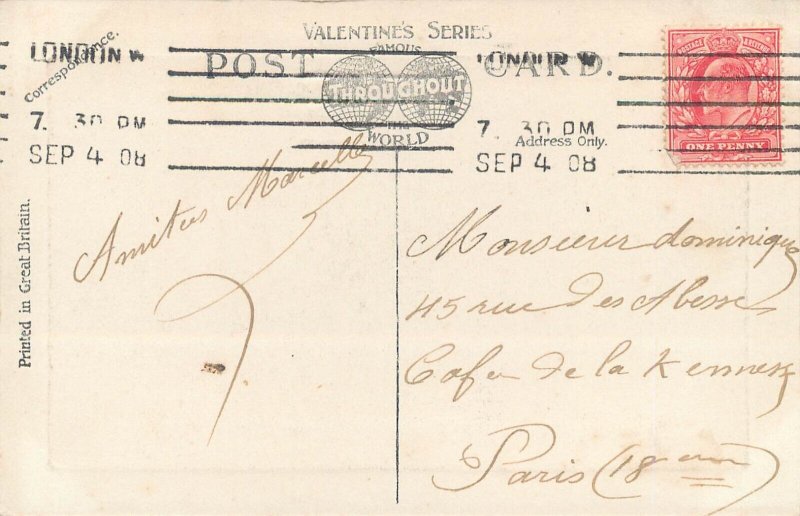 VALENTINE'S SERIES
FAMOUS
POST CARD.
THROUGHOUT
THE
WORLD
Correspondence.
Address Only.
LONDON W
7. 30 PM
SEP 4 08
LONDON W
7. 30 PM
SEP 4 08
POSTAGE REVENUE
ONE PENNY
Printed in Great Britain.
Amitiés Marcelle
Monsieur dominique
45 rue des Abesse
Cafe de la Kermess
Paris (18 eme